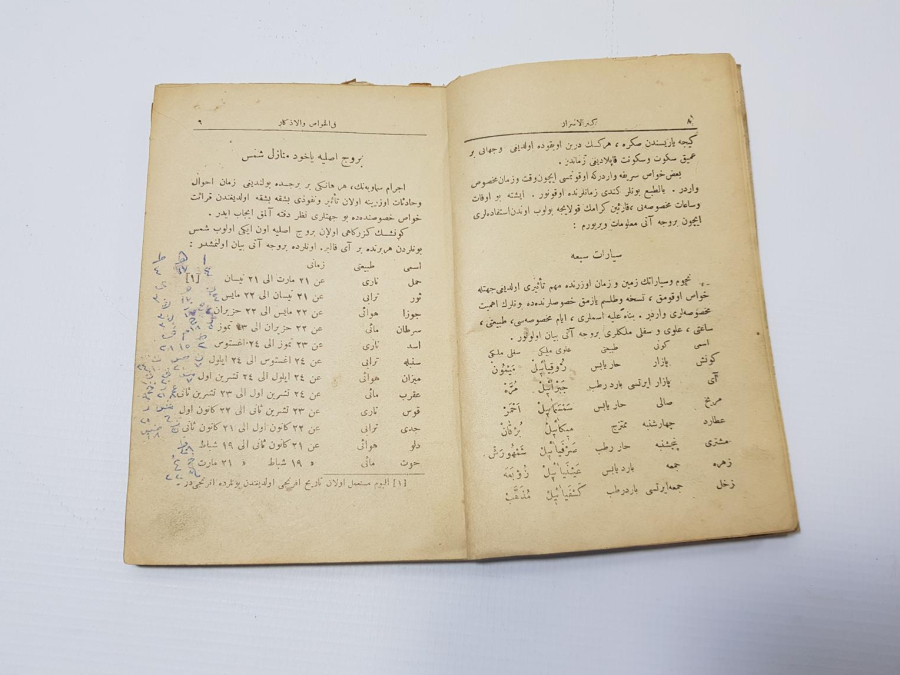 ٨
كنز الاسرار
كیجه یاریسندن صكره ، هركسك درین اویقوده اولدیغی وجهانی بر
عمیق سكون وسكونت قاپلادیغی زماندر .
بعض خواص سریفه واردركه اوقونمسی ایچون وقت وزمان مخصوص
واردر . بالطبع بونلر كندی زمانلرنده اوقونور . ایشته بو اوقات
وساعات مخصوصه‌یی ، قارئین كرامك قولایجه بولوب اوندن استفاده‌لری
ایچون بروجه آتی معلومات ویریورم :
سیارات سبعه
نجوم وسیاراتك زمین و زمان اوزرنده مهم تأثیری اولدیغی جهتله
خواص اوقومق ، نسخه وطلسم یازمق خصوصلرنده‌ده ونلرك اهمیت
مخصوصه‌لری واردر . بناء علیه اسملری ، ایام مخصوصه‌سی ، طبیعتی ،
ساعتی ، علوی و سفلی ملكلری بروجه آتی بیان اولونور :
اسمی كونی طبیعتی علوی ملكی سفلی ملكی
كونش پازار حار یابس رُوقِیَائِیلْ مَیْمُونْ
آی پازار ایرتسی بارد رطب جَبْرَائِیلْ مُرَّهْ
مریخ صالی حار یابس سَمْسَمَائِیلْ اَحْمَرْ
عطارد چهارشنبه ممتزج مِیكَائِیلْ بُرْقَانْ
مشتری پنجشنبه حار رطب صَرْفَیَائِیلْ شَمْهُورَشْ
زهره جمعه بارد یابس عَیْنَیَائِیلْ زَوْبَعَهْ
زحل جمعه ایرتسی بارد رطب كَسْفَیَائِیلْ مُذَهَّبْ
فی الخواص والاذكار
٩
بروج اصلیه یاخود منازل شمس
اجرام سماویه‌نك ، هر هانكی بر برجسده بولندیغی زمان احوال
وحادثات اوزرینه اولان تأثیر ونفوذی بشقه بشقه اولدیغندن قرائت
خواص خصوصنده‌ده بو جهتلری نظر دقته آلمق ایجاب ایدر .
كونشك كزركاهی اولان بروج اصلیه اون ایكی اولوب شمس
بونلردن هربرنده بر آی قالیر. اونلرده بروجه آتی بیان اولنمشدر :
اسمی طبیعتی زمانی
حمل ناری عن ٢١ مارت الی ٢١ نیسان [١]
ثور ترابی عن ٢١ نیسان الی ٢٢ مایس
جوزا هوائی عن ٢٢ مایس الی ٢٢ حزیران
سرطان مائی عن ٢٢ حزیران الی ٢٣ تموز
اسد ناری عن ٢٣ تموز الی ٢٤ اغستوس
سنبله ترابی عن ٢٤ اغستوس الی ٢٤ ایلول
میزان هوائی عن ٢٤ ایلول الی ٢٤ تشرین اول
عقرب مائی عن ٢٤ تشرین اول الی ٢٣ تشرین ثانی
قوس ناری عن ٢٣ تشرین ثانی الی ٢٢ كانون اول
جدی ترابی عن ٢٢ كانون اول الی ٢١ كانون ثانی
دلو هوائی عن ٢١ كانون ثانی الی ١٩ شباط
حوت مائی « ١٩ شباط « ٢١ مارت
[١] الیوم مستعمل اولان تاریخ افرنجی اولدیغندن بونلرده افرنجی‌در .